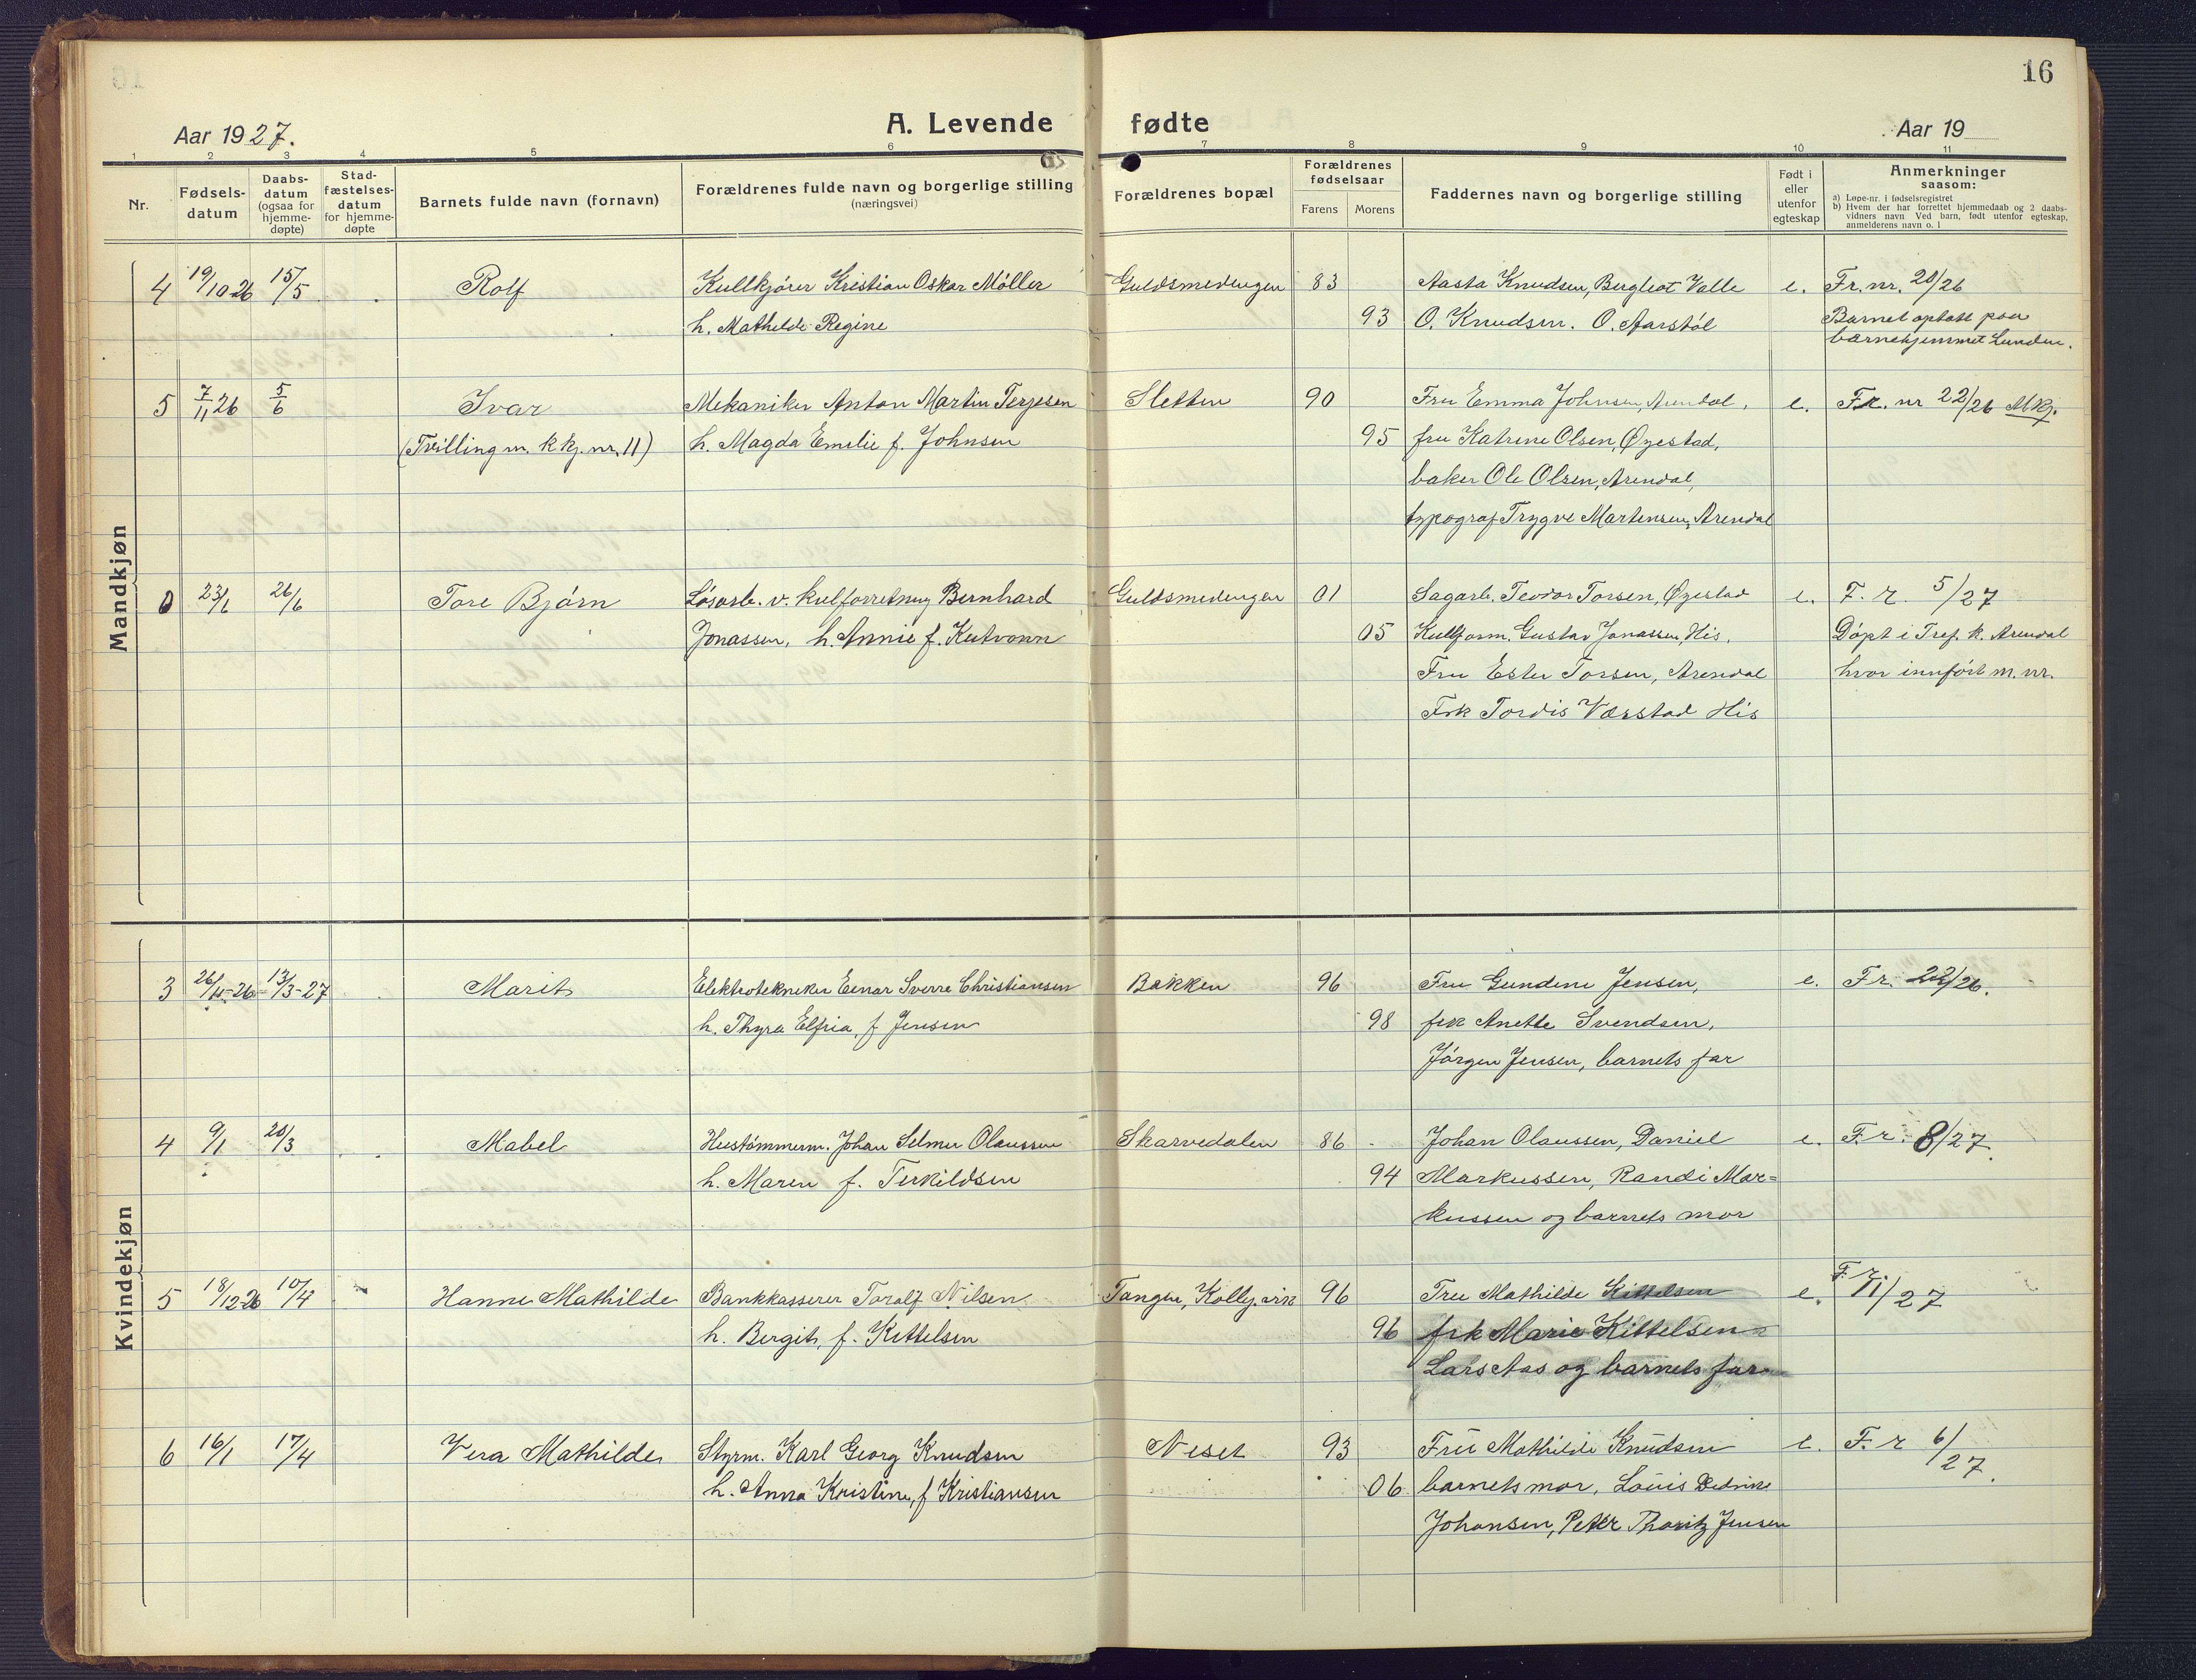 16
Aar 1927.
A. Levende fødte
Aar 19
1 2 3 4 5 6 7 8 9 10 11
Nr.
Fødsels-
datum
Daabs-
datum
(ogsaa for
hjemme-
døpte)
Stad-
fæstelses-
datum
for hjemme-
døpte
Barnets fulde navn (fornavn)
Forældrenes fulde navn og borgerlige stilling
(næringsvei)
Forældrenes bopæl
Forældrenes
fødselsaar
Farens Morens
Faddernes navn og borgerlige stilling
Født i
eller
utenfor
egteskap
Anmerkninger
saasom:
a) Løpe-nr. i fødselsregistret
b) Hvem der har forrettet hjemmedaab og 2 daabs-
vidners navn Ved barn, født utenfor egteskap,
anmelderens navn o. l
Mandkjøn
4 19/10-26 15/5 Rolf Kullkjører Kristian Oskar Møller Guldsmedengen 83 Aasta Knudsen, Bergliot Valle e. Fr. nr. 20/26
h. Mathilde Regine 93 O. Knudsen. O. Aarstøl Barnet optatt paa
barnehjemmet Lunden.
5 7/11 26 5/6 Ivar Mekaniker Anton Martin Terjesen Sletten 90 Fru Emma Johnsen, Arendal, e. Fr. nr 22/26 Mkj.
(Tvilling m. kkj. nr. 11) h. Magda Emelie f. Johnsen 95 fru Katrine Olsen, Øyestad,
baker Ole Olsen, Arendal,
typograf Trygve Martensen, Arendal
23/1 26/6 Tore Bjørn Løsarb. v. kulforretning Bernhard Guldsmedengen 01 Sagarb. Teodor Torsen, Øyestad e. F. r. 5/27
Jonassen, h. Annie f. Kutvonn 05 Kullform. Gustav Jonassen, His, Døpt i Tref. k. Arendal
Fru Ester Torsen, Arendal hvor innført m. nr.
Frk Tordis Værstad His
Kvindekjøn
3 26/11-26 13/3-27 Marit Elektrotekniker Einar Sverre Christiansen Bakken 96 Fru Gundine Jensen, e. Fr. 22/26.
h. Thyra Elfria, f Jensen 98 frk Anette Svendsen,
Jørgen Jensen, barnets far
4 9/1 20/3 Mabel Hustømmerm. Johan Selmer Olaussen Skarvedalen 86 Johan Olaussen, Daniel e. F. r. 8/27.
h. Maren f. Terkildsen 94 Markussen, Randi Mar=
kussen og barnets mor
5 18/12-26 10/4 Hanne Mathilde Bankkasserer Toralf Nilsen Tangen, Kolbj.vik 96 Fru Mathilde Kittelsen e. F. r. 11/27
h. Bergit, f. Kittelsen 96 frk Marie Kittelsen
Lars Aas og barnets far
6 16/1 17/4 Vera Mathilde Styrm. Karl Georg Knudsen Neset 93 Frü Mathilde Knüdsen e. F. r 6/27.
h. Anna Kristine, f Kristiansen 06 barnets mor, Loüis Dedrik
Johansen, Peter Thoritz Jensen